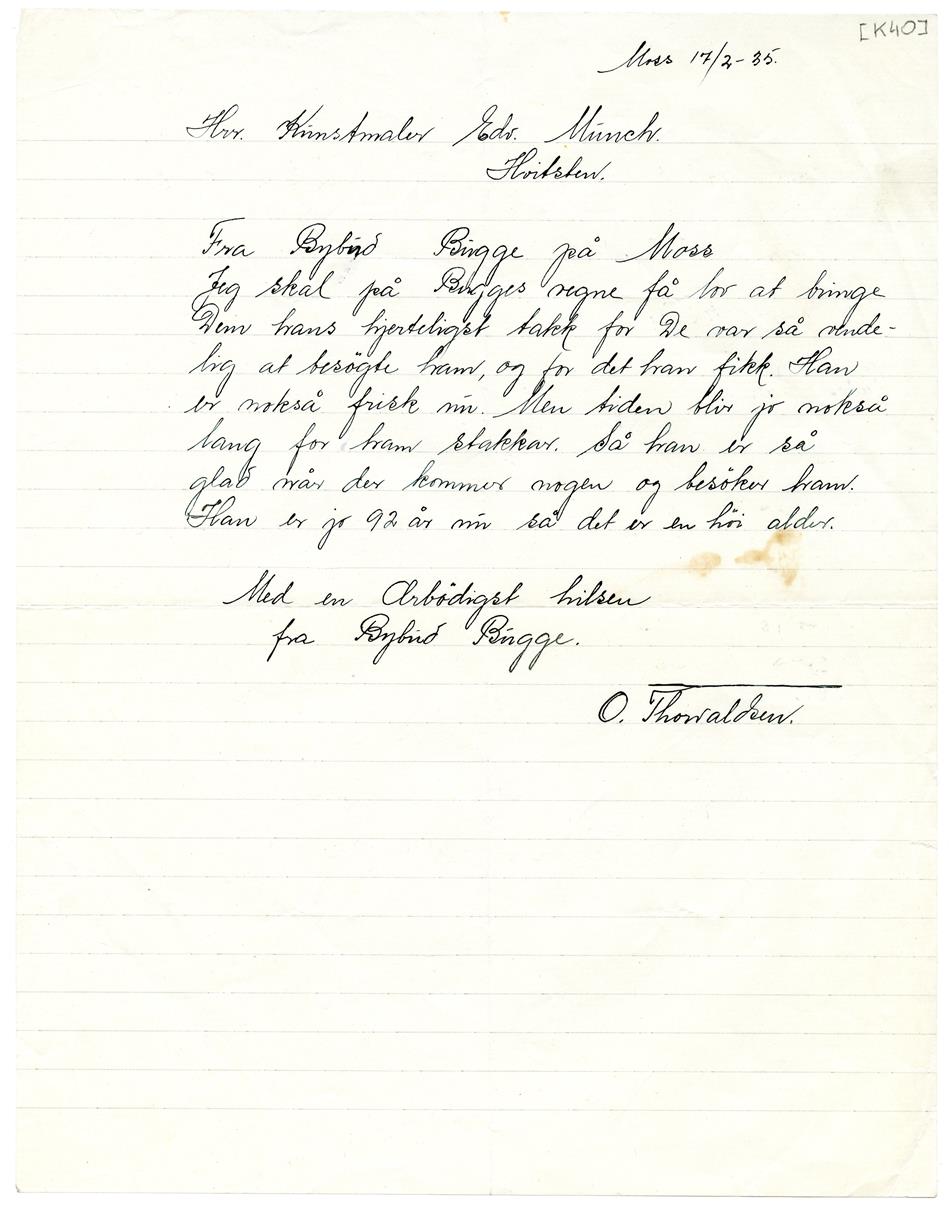 [K40]
Moss 17/2-35.
Hrr. Kunstmaler Edv. Munch.
Hvitsten.
Fra Bybud Bugge på Moss
Jeg skal på Bugges vegne få lov at bringe
Dem hans hjerteligst takk for De var så vende-
lig at besøgte ham, og for det han fikk. Han
er nokså frisk nu. Men tiden blir jo nokså
lang for ham stakkar. Så han er så
glad når der kommer nogen og besöker ham.
Han er jo 92 år nu så det er en höi alder.
Med en Ærbödigst hilsen
fra Bybud Bugge.
O. Thorvaldsen.